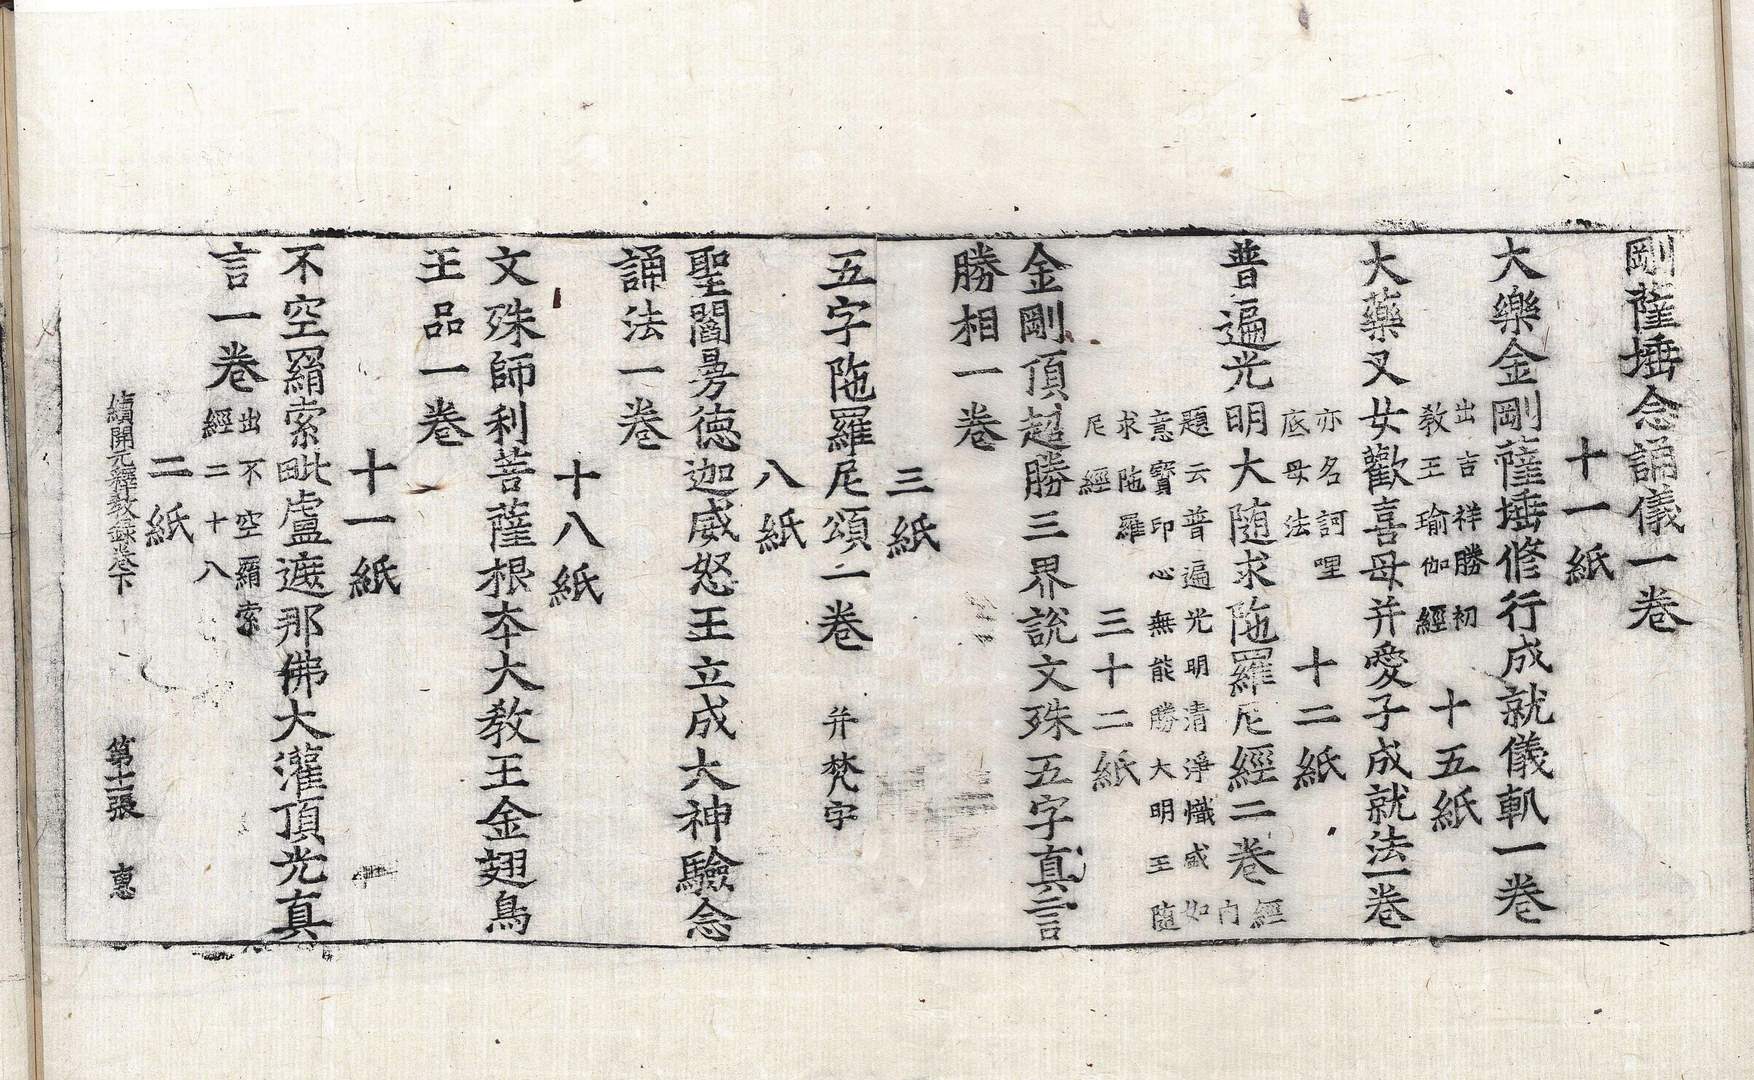 剛薩埵念誦儀一卷
十一紙
大樂金剛薩埵修行成就儀軌一卷
出吉祥勝初
教王瑜伽經
十五紙
大藥叉女歡喜母并愛子成就法一卷
亦名訶哩
底母法
十二紙
普遍光明大随求陁羅尼經二卷
經
内
題云普遍光明清淨熾盛如
意寶印心無能勝大明王随
求陁羅
尼經
三十二紙
金剛頂超勝三界說文殊五字真言
勝相一卷
三紙
五字陁羅尼頌一卷
并梵字
八紙
聖閻曼德迦威怒王立成大神驗念
誦法一卷
十八紙
文殊師利菩薩根夲大教王金翅鳥
王品一卷
十一紙
不空羂索毗盧遮那佛大灌頂光真
言一卷
出不空羂索
經二十八
二紙
續開元釋教録卷下
第十一張
惠